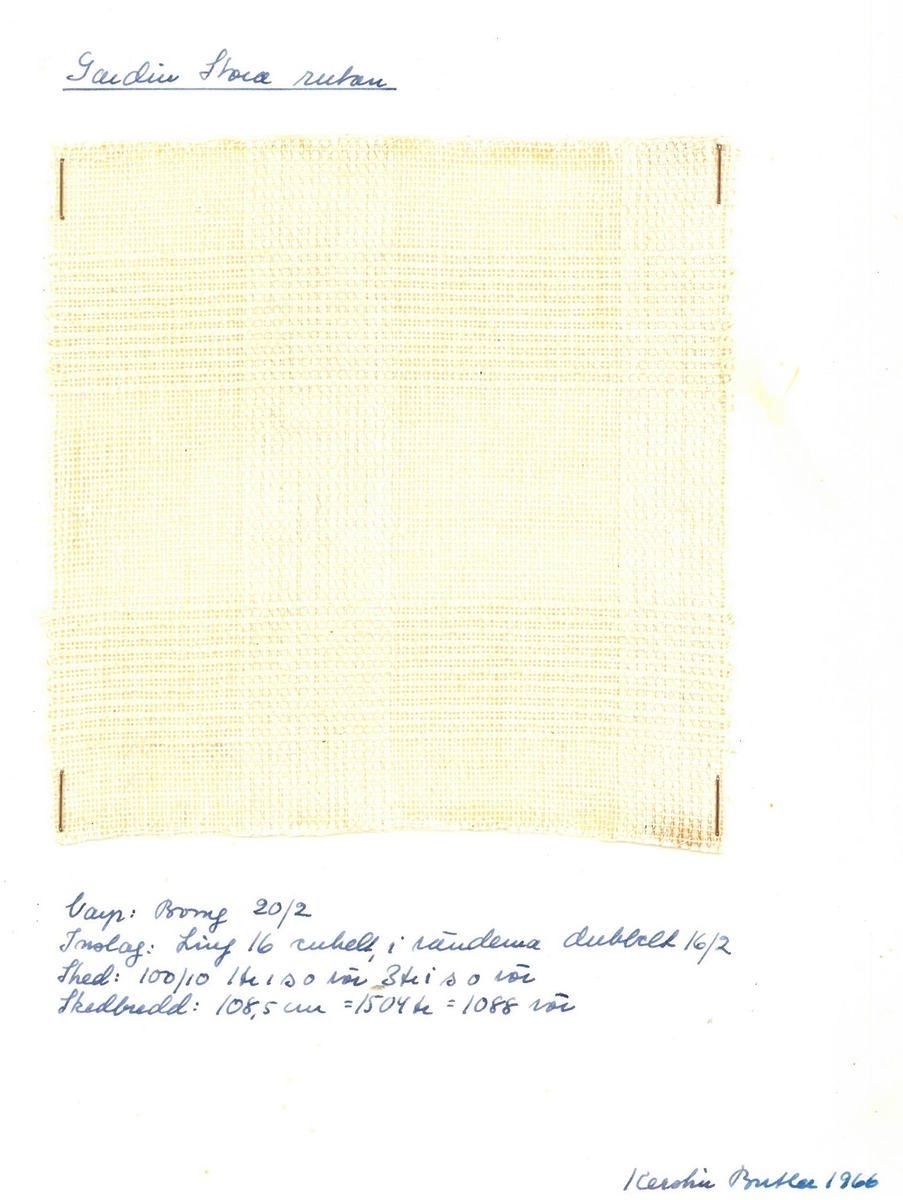 Gardin Stora rutan
Varp: Bomg 20/2
Inslag: Ling 16 enkelt, i ränderna dubbelt 16/2
Sked: 100/10 1 tr i s o rör 3 tr i s o rör
Skedbredd: 108,5 cm = 1504 tr = 1088 rör
Kerstin Butler 1966